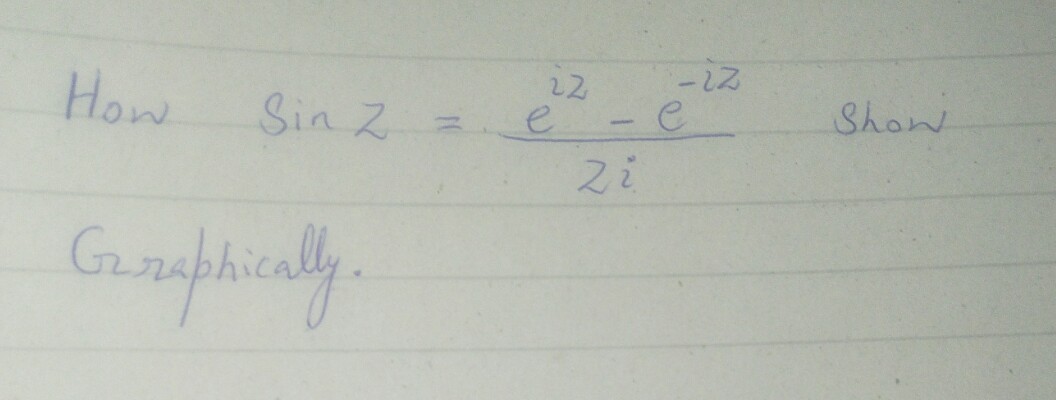 How Sin Z = e^{iz} - e^{-iz} / 2i Show
Graphically.